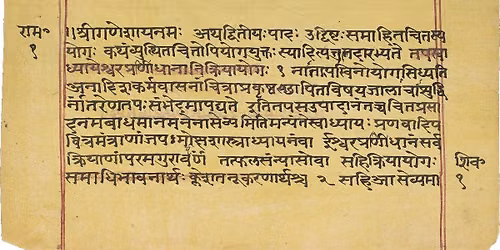 रामः
१
॥श्रीगणेशायनमः अथद्वितीयःपादः उद्दिष्टःसमाहितचित्तस्य
योगः कथंव्युत्थितचित्तोपियोगयुक्तः स्यादित्येतदारभ्यते तपःस्वा
ध्यायेश्वरप्रणीधानानिक्रियायोगः १ नातपस्विनोयोगःसिध्यति
अनादिक्लेशकर्मवासनाचित्राप्रत्युपस्थापितविषयजालाचाशुद्धि
र्नांतरेणतपःसंभेदमापद्यते इतितपसउपादानंतच्चचित्तप्रसा
दनमबाधमानमनेनासेव्यमितिमन्यतेस्वाध्यायः प्रणवादिप
वित्रमंत्राणांजपःमोक्षशास्त्राध्ययनंवा ईश्वरप्रणीधानंसर्व
क्रियाणांपरमगुरावर्पणं तत्फलसंन्यासोवा सहिक्रियायोगः
समाधिभावनार्थः क्लेशतनूकरणार्थश्च २ सहिआसेव्यमा
शिवः
१